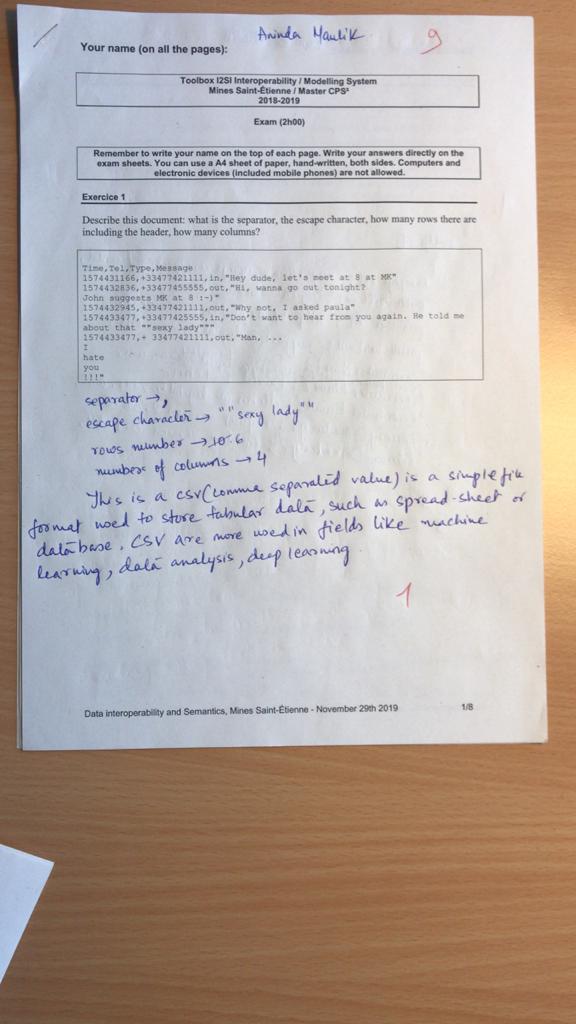 Aninda Maulik 9
Your name (on all the pages):
Toolbox I2SI Interoperability / Modelling System
Mines Saint-Étienne / Master CPS²
2018-2019
Exam (2h00)
Remember to write your name on the top of each page. Write your answers directly on the
exam sheets. You can use a A4 sheet of paper, hand-written, both sides. Computers and
electronic devices (included mobile phones) are not allowed.
Exercice 1
Describe this document: what is the separator, the escape character, how many rows there are
including the header, how many columns?
Time,Tel,Type,Message
1574431166,+33477421111,in,"Hey dude, let's meet at 8 at MK"
1574432836,+33477455555,out,"Hi, wanna go out tonight?
John suggests MK at 8 :-)"
1574432945,+33477421111,out,"Why not, I asked paula"
1574433477,+33477425555,in,"Don't want to hear from you again. He told me
about that ""sexy lady"""
1574433477,+ 33477421111,out,"Man, ...
I
hate
you
!!!"
separator → ,
escape character → ""sexy lady""
rows number → 6
number of columns → 4
This is a csv (comma separated value) is a simple file
format used to store tabular data, such as spread-sheet or
database. CSV are more used in fields like machine
learning, data analysis, deep learning
1
Data interoperability and Semantics, Mines Saint-Étienne - November 29th 2019 1/8